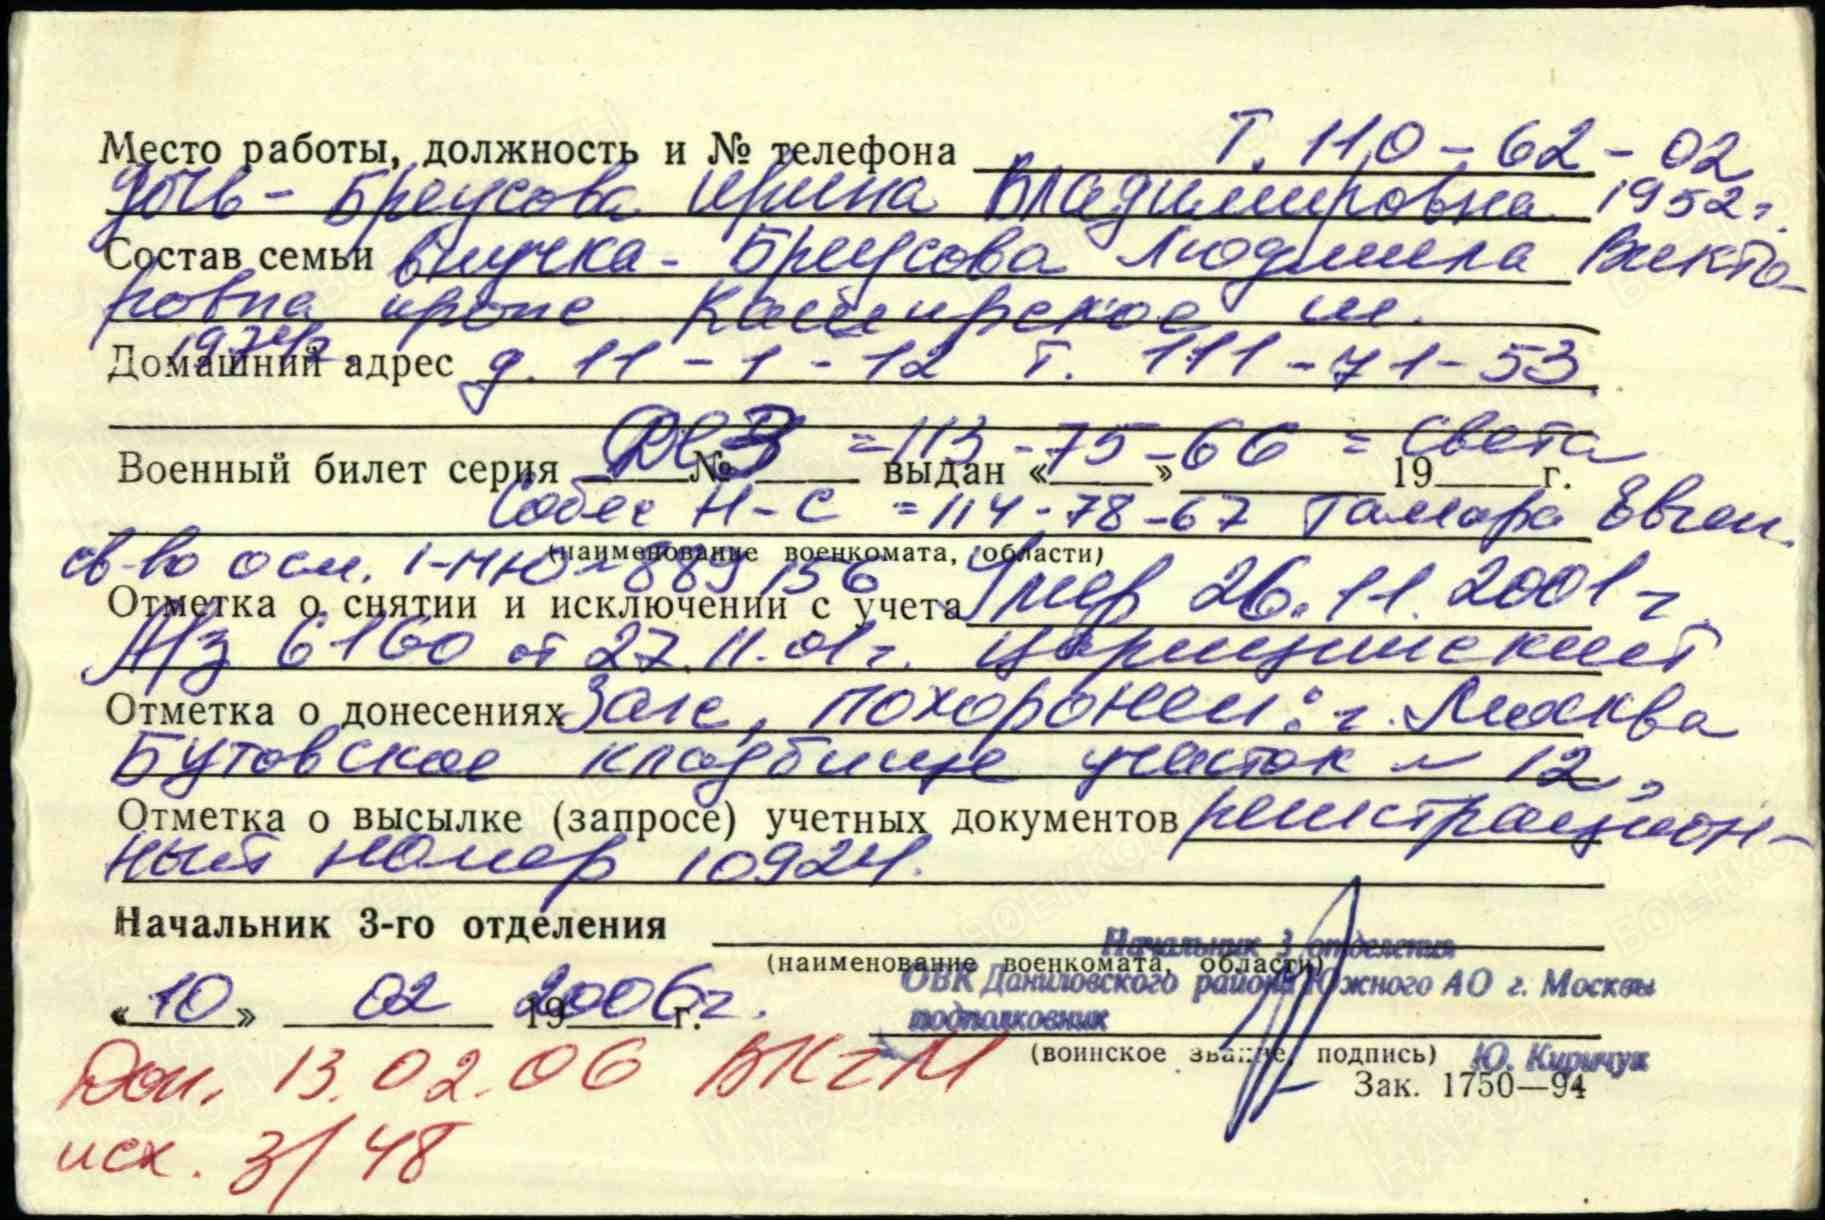 Место работы, должность и № телефона Т. 110-62-02
дочь - Бреусова Ирина Владимировна 1952г.
Состав семьи внучка - Бреусова Людмила Викто-
ровна
1974г.
Каширское ш.
Домашний адрес д. 11-1-12 т. 111-71-53
РЭУ 3 = 113-75-66 = Света
Военный билет серия № выдан « » 19 г.
Собес Н-С = 114-78-67 Тамара Евген.
(наименование военкомата, области)
св-во о см. 1-МЮ № 889156
Отметка о снятии и исключении с учета Умер 26.11.2001г.
А/з 6160 от 27.11.01г. Царицинский
Отметка о донесениях Загс, похоронен: г. Москва
Бутовское кладбище участок № 12,
Отметка о высылке (запросе) учетных документов регистрацион-
ный номер 10924.
Начальник 3-го отделения
Начальник 3 отделения
(наименование военкомата, области)
ОВК Даниловского района Южного АО г. Москвы
«10» 02 19 2006г. г.
подполковник
(воинское звание, подпись) Ю. Киричук
Дон. 13.02.06 ВКгМ
Зак. 1750—94
исх. 3/48